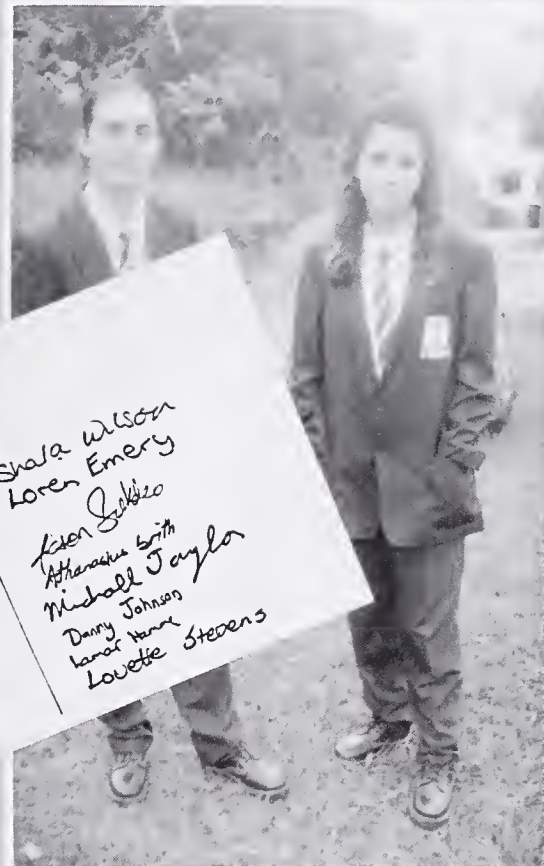 Shala Wilson
Loren Emery
Athanasius Smith
Michall Taylor
Danny Johnson
Lamar
Lovette Stevens